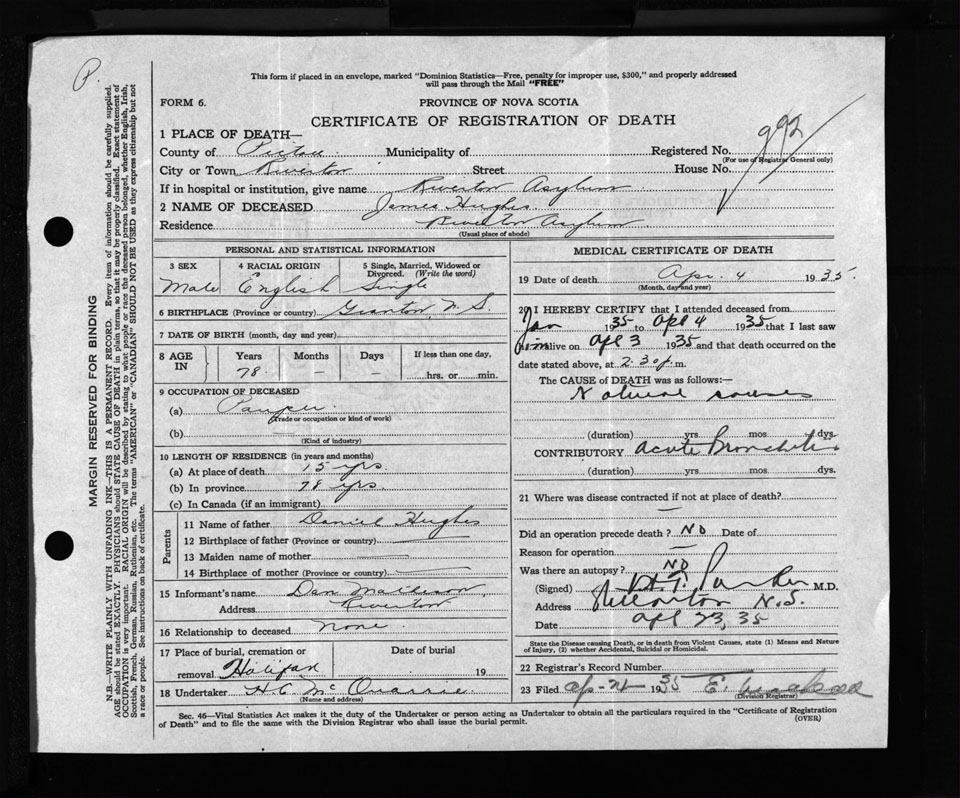 P.
This form if placed in an envelope, marked "Dominion Statistics—Free, penalty for improper use, $300," and properly addressed
will pass through the Mail "FREE"
FORM 6.
PROVINCE OF NOVA SCOTIA
CERTIFICATE OF REGISTRATION OF DEATH
992
1 PLACE OF DEATH—
County of Pictou Municipality of Registered No.
(For use of Registrar General only)
City or Town Riverton Street House No.
If in hospital or institution, give name Riverton Asylum
2 NAME OF DECEASED James Hughes
Residence Riverton Asylum
(Usual place of abode)
PERSONAL AND STATISTICAL INFORMATION
3 SEX 4 RACIAL ORIGIN 5 Single, Married, Widowed or Divorced. (Write the word)
Male English Single
6 BIRTHPLACE (Province or country) Granton N. S.
7 DATE OF BIRTH (month, day and year)
8 AGE IN Years Months Days If less than one day,
78 – – hrs. or min.
9 OCCUPATION OF DECEASED
(a) Pauper
(Trade or occupation or kind of work)
(b)
(Kind of industry)
10 LENGTH OF RESIDENCE (in years and months)
(a) At place of death 15 yrs
(b) In province 78 yrs.
(c) In Canada (if an immigrant)
Parents
11 Name of father Daniel Hughes
12 Birthplace of father (Province or country)
13 Maiden name of mother
14 Birthplace of mother (Province or country)
15 Informant's name Dan
Address Riverton
16 Relationship to deceased none
17 Place of burial, cremation or Date of burial
removal Halifax 19
18 Undertaker H.C. McQuarrie
(Name and address)
MEDICAL CERTIFICATE OF DEATH
19 Date of death Apr. 4 1935.
(Month, day and year)
20 I HEREBY CERTIFY that I attended deceased from
Jan 1935 to Apl 4 1935 that I last saw
him alive on Apl 3 1935 and that death occurred on the
date stated above, at 2.30 p. m.
The CAUSE of DEATH was as follows:—
Natural causes
(duration) yrs. mos. dys.
CONTRIBUTORY Acute Bronchitis
(duration) yrs. mos. dys.
21 Where was disease contracted if not at place of death?
—
Did an operation precede death? No Date of
Reason for operation —
Was there an autopsy? No
(Signed) Parker M.D.
Address Stellarton N.S.
Date Apl 23, 35
State the Disease causing Death, or in death from Violent Causes, state (1) Means and Nature
of Injury, (2) whether Accidental, Suicidal or Homicidal.
22 Registrar's Record Number
23 Filed Ap- 24 1935 E.
(Division Registrar)
Sec. 46—Vital Statistics Act makes it the duty of the Undertaker or person acting as Undertaker to obtain all the particulars required in the "Certificate of Registration
of Death" and to file the same with the Division Registrar who shall issue the burial permit.
(OVER)
MARGIN RESERVED FOR BINDING
N.B.—WRITE PLAINLY WITH UNFADING INK—THIS IS A PERMANENT RECORD. Every item of information should be carefully supplied.
AGE should be stated EXACTLY. PHYSICIANS should STATE CAUSE OF DEATH in plain terms, so that it may be properly classified. Exact statement of
OCCUPATION is very important. RACIAL ORIGIN will be described by stating to what people or race the deceased person belonged, whether English, Irish,
Scottish, French, German, Russian, Ruthenian, etc. The terms "AMERICAN" or "CANADIAN" SHOULD NOT BE USED as they express citizenship but not
a race or people. See instructions on back of certificate.